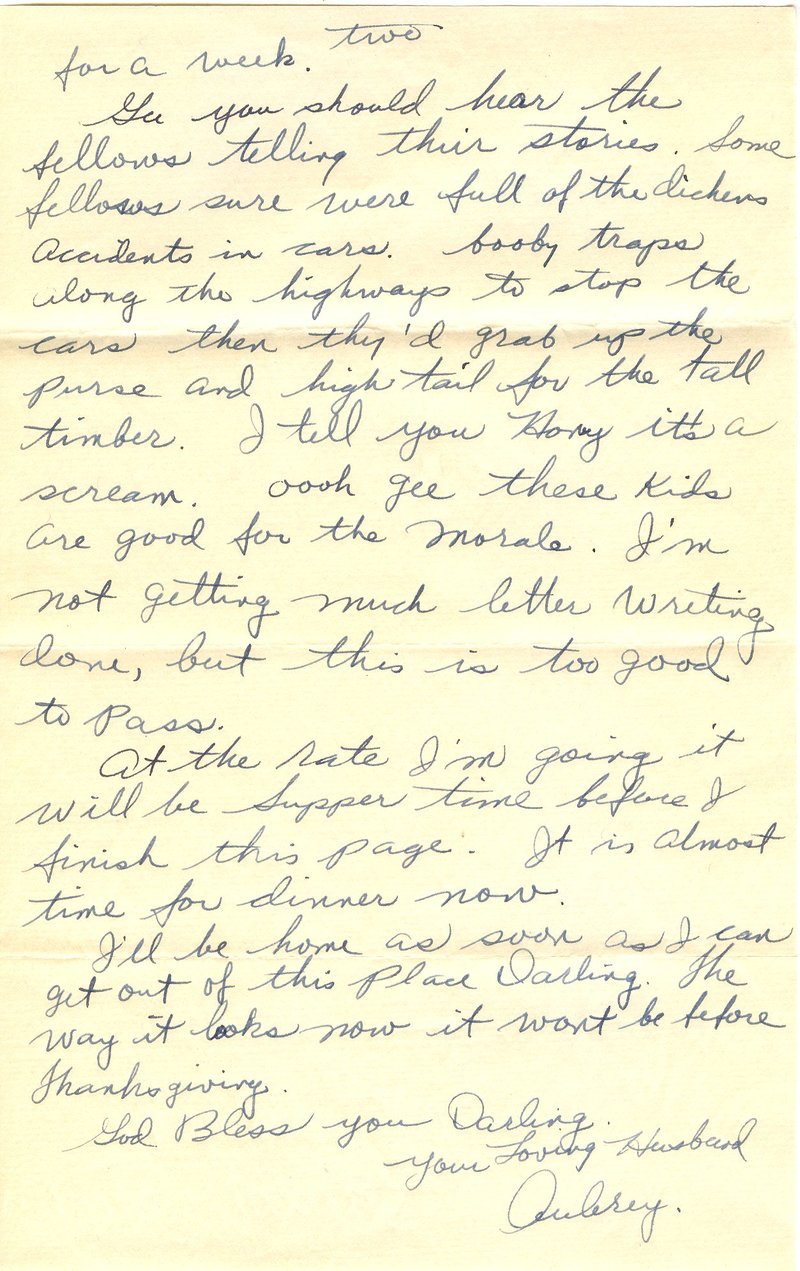 two
for a week.
Gee you should hear the
fellows telling their stories. Some
fellows sure were full of the dickens
Accidents in cars. booby traps
along the highways to stop the
cars then they'd grab up the
purse and high tail for the tall
timber. I tell you Hony it's a
scream. oooh gee these Kids
are good for the morale. I'm
not getting much letter writing
done, but this is too good
to pass.
At the rate I'm going it
will be supper time before I
finish this page. It is almost
time for dinner now.
I'll be home as soon as I can
get out of this place Darling. The
way it looks now it wont be before
Thanksgiving.
God Bless you Darling.
Your Loving Husband
Aubrey.